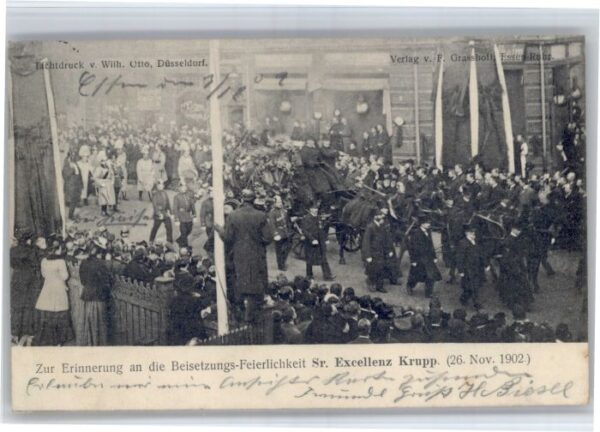 Lichtdruck v. Wilh. Otto, Düsseldorf.
Verlag v. F. Grasshoff, Essen-Ruhr.
Essen den
Zur Erinnerung an die Beisetzungs-Feierlichkeit Sr. Excellenz Krupp. (26. Nov. 1902.)
Erlaube mir eine Ansichts Karte zusenden
Freundl Gruß H. Biesel